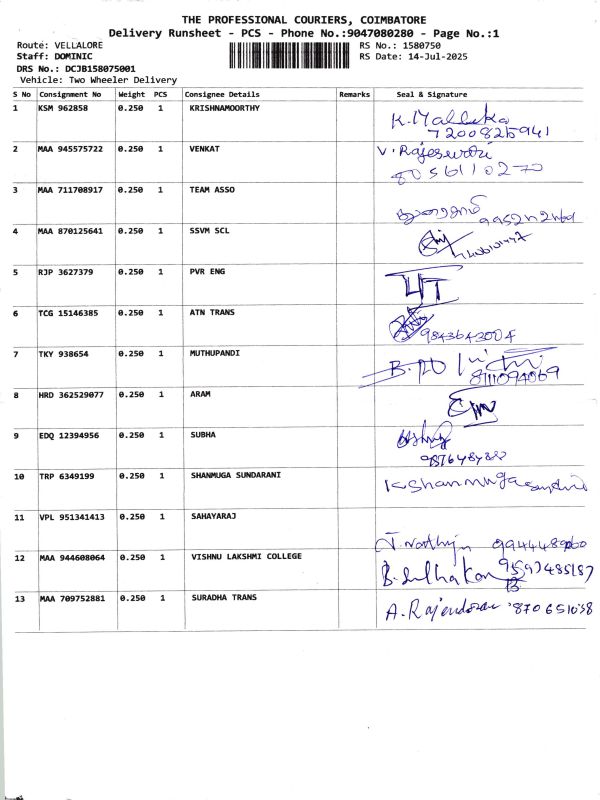 THE PROFESSIONAL COURIERS, COIMBATORE
Delivery Runsheet - PCS - Phone No.:9047080280 - Page No.:1
Route: VELLALORE RS No.: 1580750
Staff: DOMINIC RS Date: 14-Jul-2025
DRS No.: DCJB158075001
Vehicle: Two Wheeler Delivery
S No Consignment No Weight PCS Consignee Details Remarks Seal & Signature
1 KSM 962858 0.250 1 KRISHNAMOORTHY K. Mallika
7200825941
2 MAA 945575722 0.250 1 VENKAT V. Rajeswari
8056110270
3 MAA 711708917 0.250 1 TEAM ASSO
4 MAA 870125641 0.250 1 SSVM SCL
5 RJP 3627379 0.250 1 PVR ENG
6 TCG 15146385 0.250 1 ATN TRANS
9843643004
7 TKY 938654 0.250 1 MUTHUPANDI
8111094069
8 HRD 362529077 0.250 1 ARAM
9 EDQ 12394956 0.250 1 SUBHA
10 TRP 6349199 0.250 1 SHANMUGA SUNDARANI K Shanmuga
11 VPL 951341413 0.250 1 SAHAYARAJ
12 MAA 944608064 0.250 1 VISHNU LAKSHMI COLLEGE
13 MAA 709752881 0.250 1 SURADHA TRANS A. Rajendran